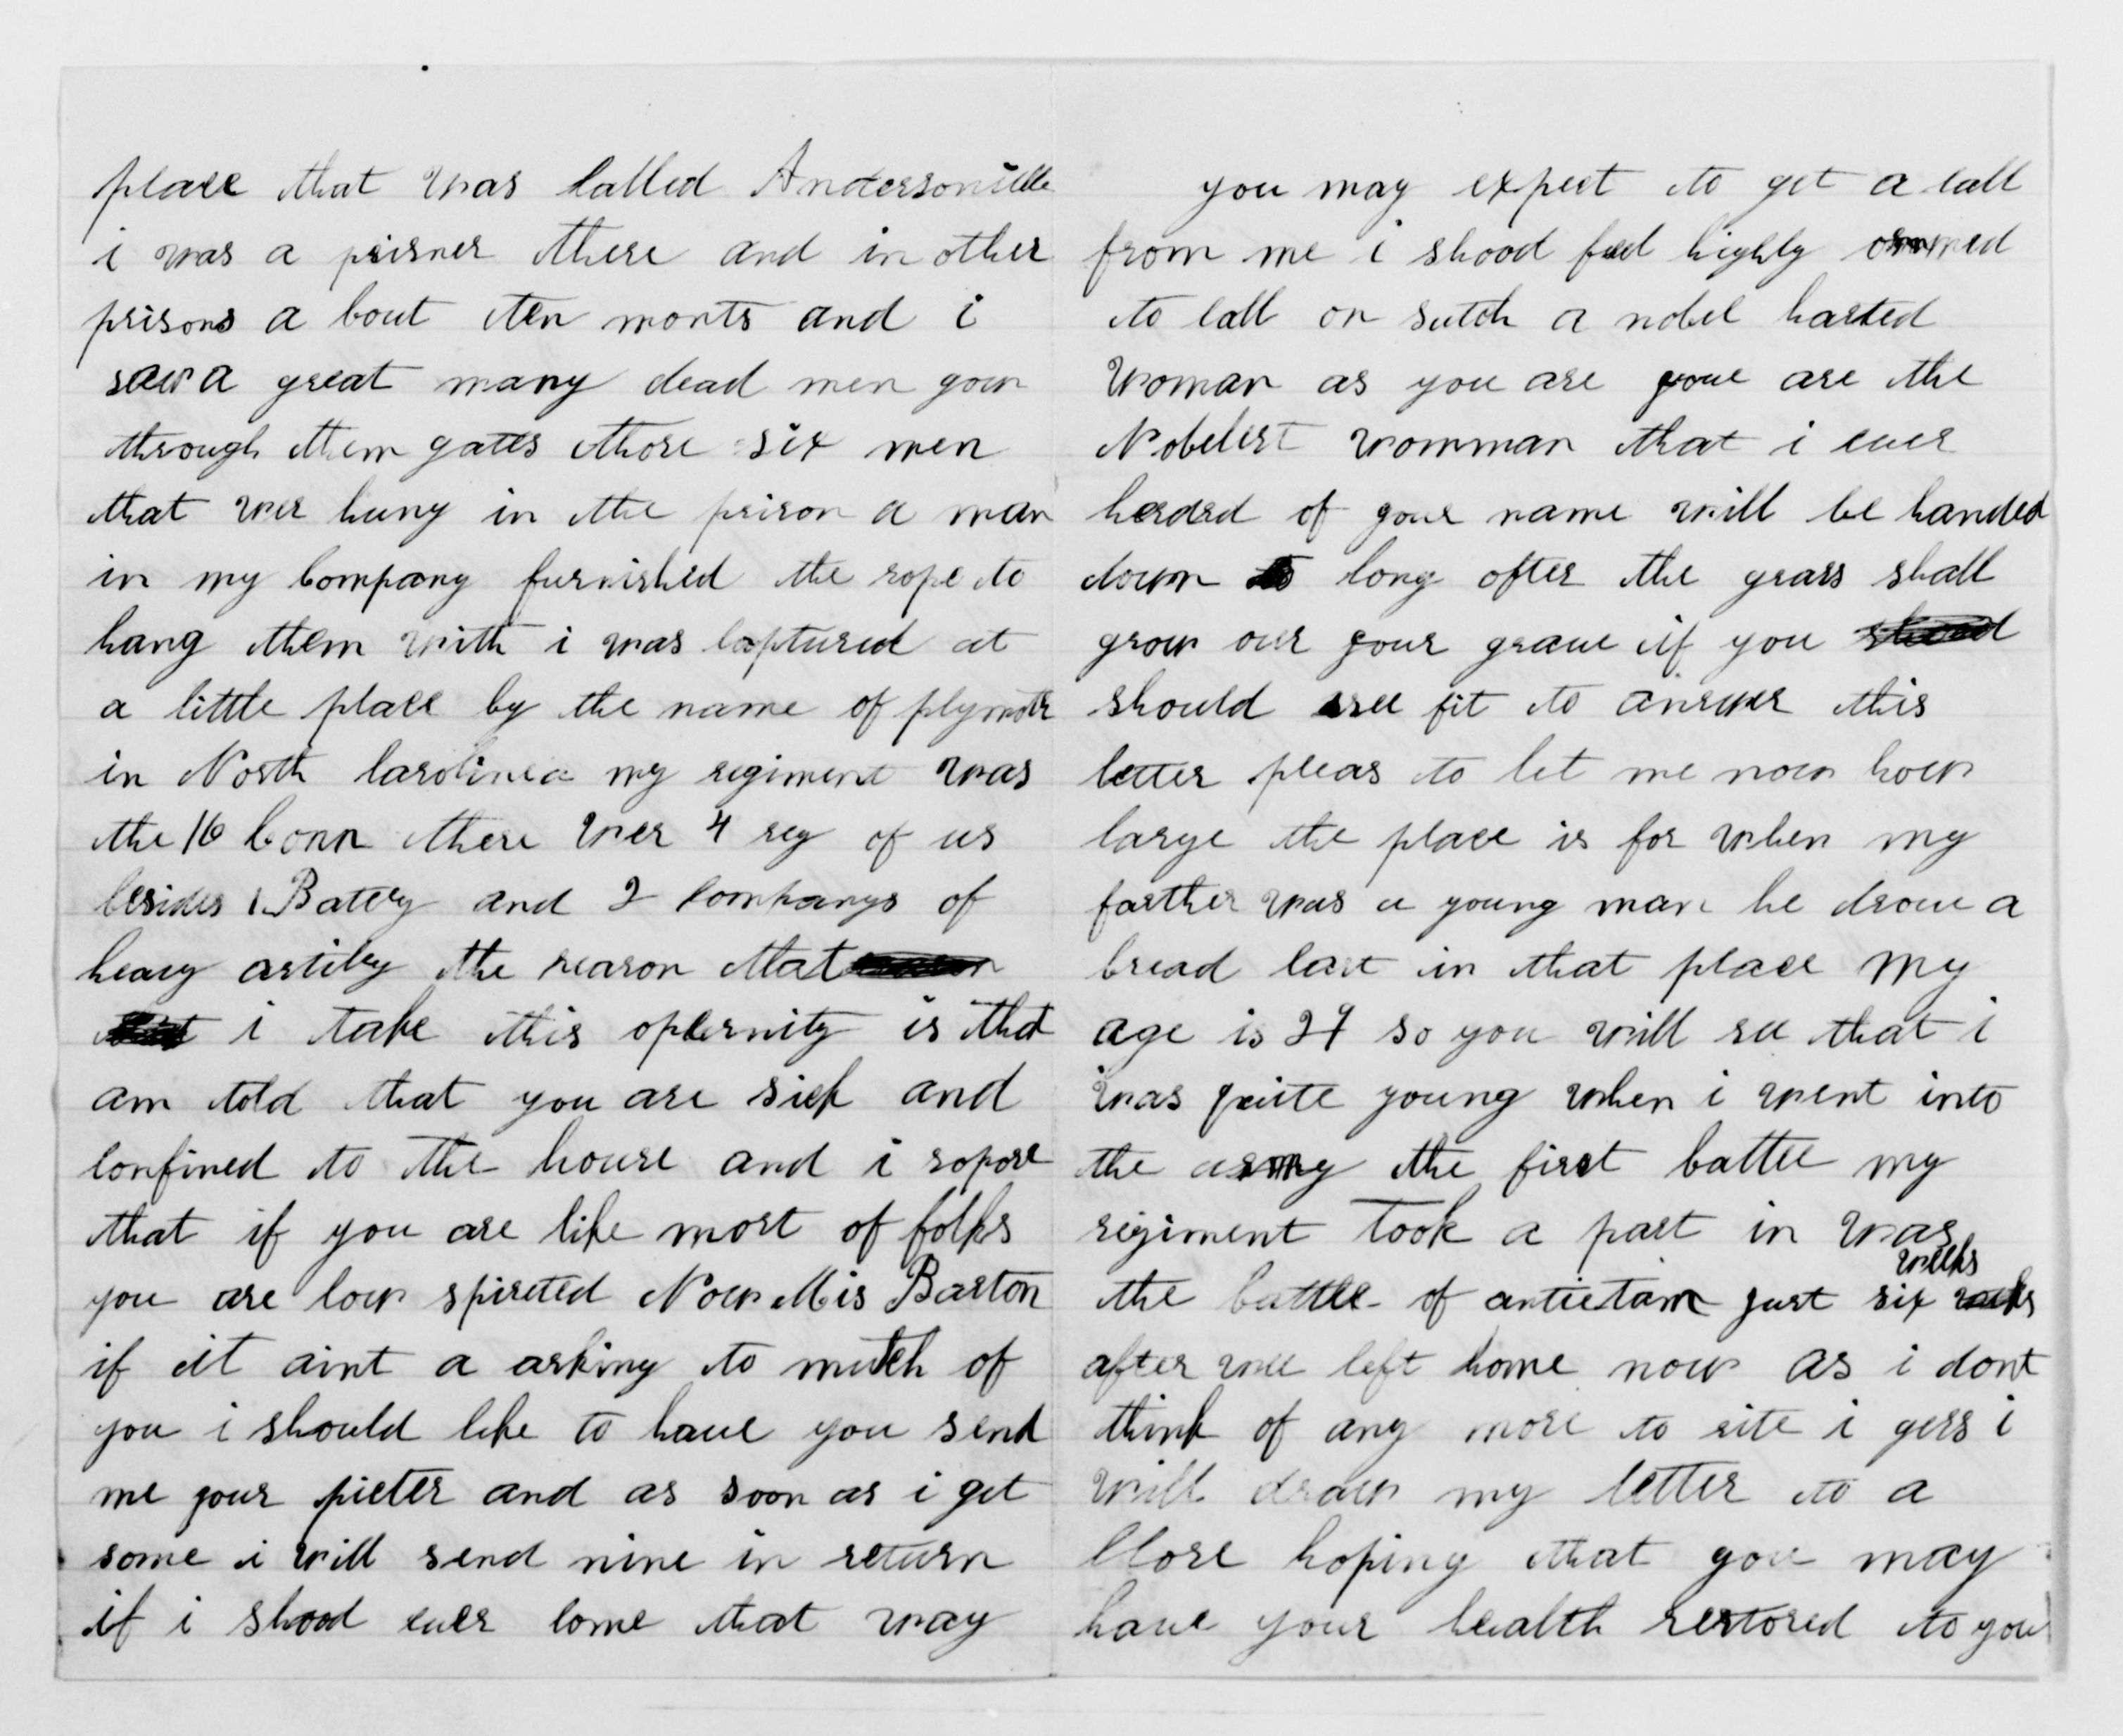 place that was called Andersonville
i was a prisner there and in other
prisons a bout ten monts and i
saw a great many dead men gow
through them gates those six men
that wer hung in the prison a man
in my Company furnished the rope to
hang them with i was captured at
a little place by the name of plymoth
in North Carolinea my regiment was
the 16 Conn there wer 4 reg of us
besides 1 Batery and 2 Companys of
heavy artiley the reason that
i take this opternity is that
am told that you are sick and
confined to the house and i sopose
that if you are like most of folks
you are low spireted Now Mis Barton
if it aint a asking to mutch of
you i should like to have you send
me your picter and as soon as i get
some i will send mine in return
if i shood ever come that way
you may expect to get a call
from me i shood feel highly
to call on sutch a nobel harted
Woman as you are youe are the
Nobelest womman that i ever
herded of youe name will be handed
down long after the grass shall
grow over your grave if you
should see fit to answer this
letter pleas to let me now how
large the place is for when my
farther was a young man he drove a
bread cart in that place My
age is 29 so you will see that i
was quite young when i went into
the army the first battle my
regiment took a part in was
the battle of antietam just six weeks
after wee left home now as i dont
think of any more to rite i gess i
will draw my letter to a
Close hoping that you may
have your health restored to you